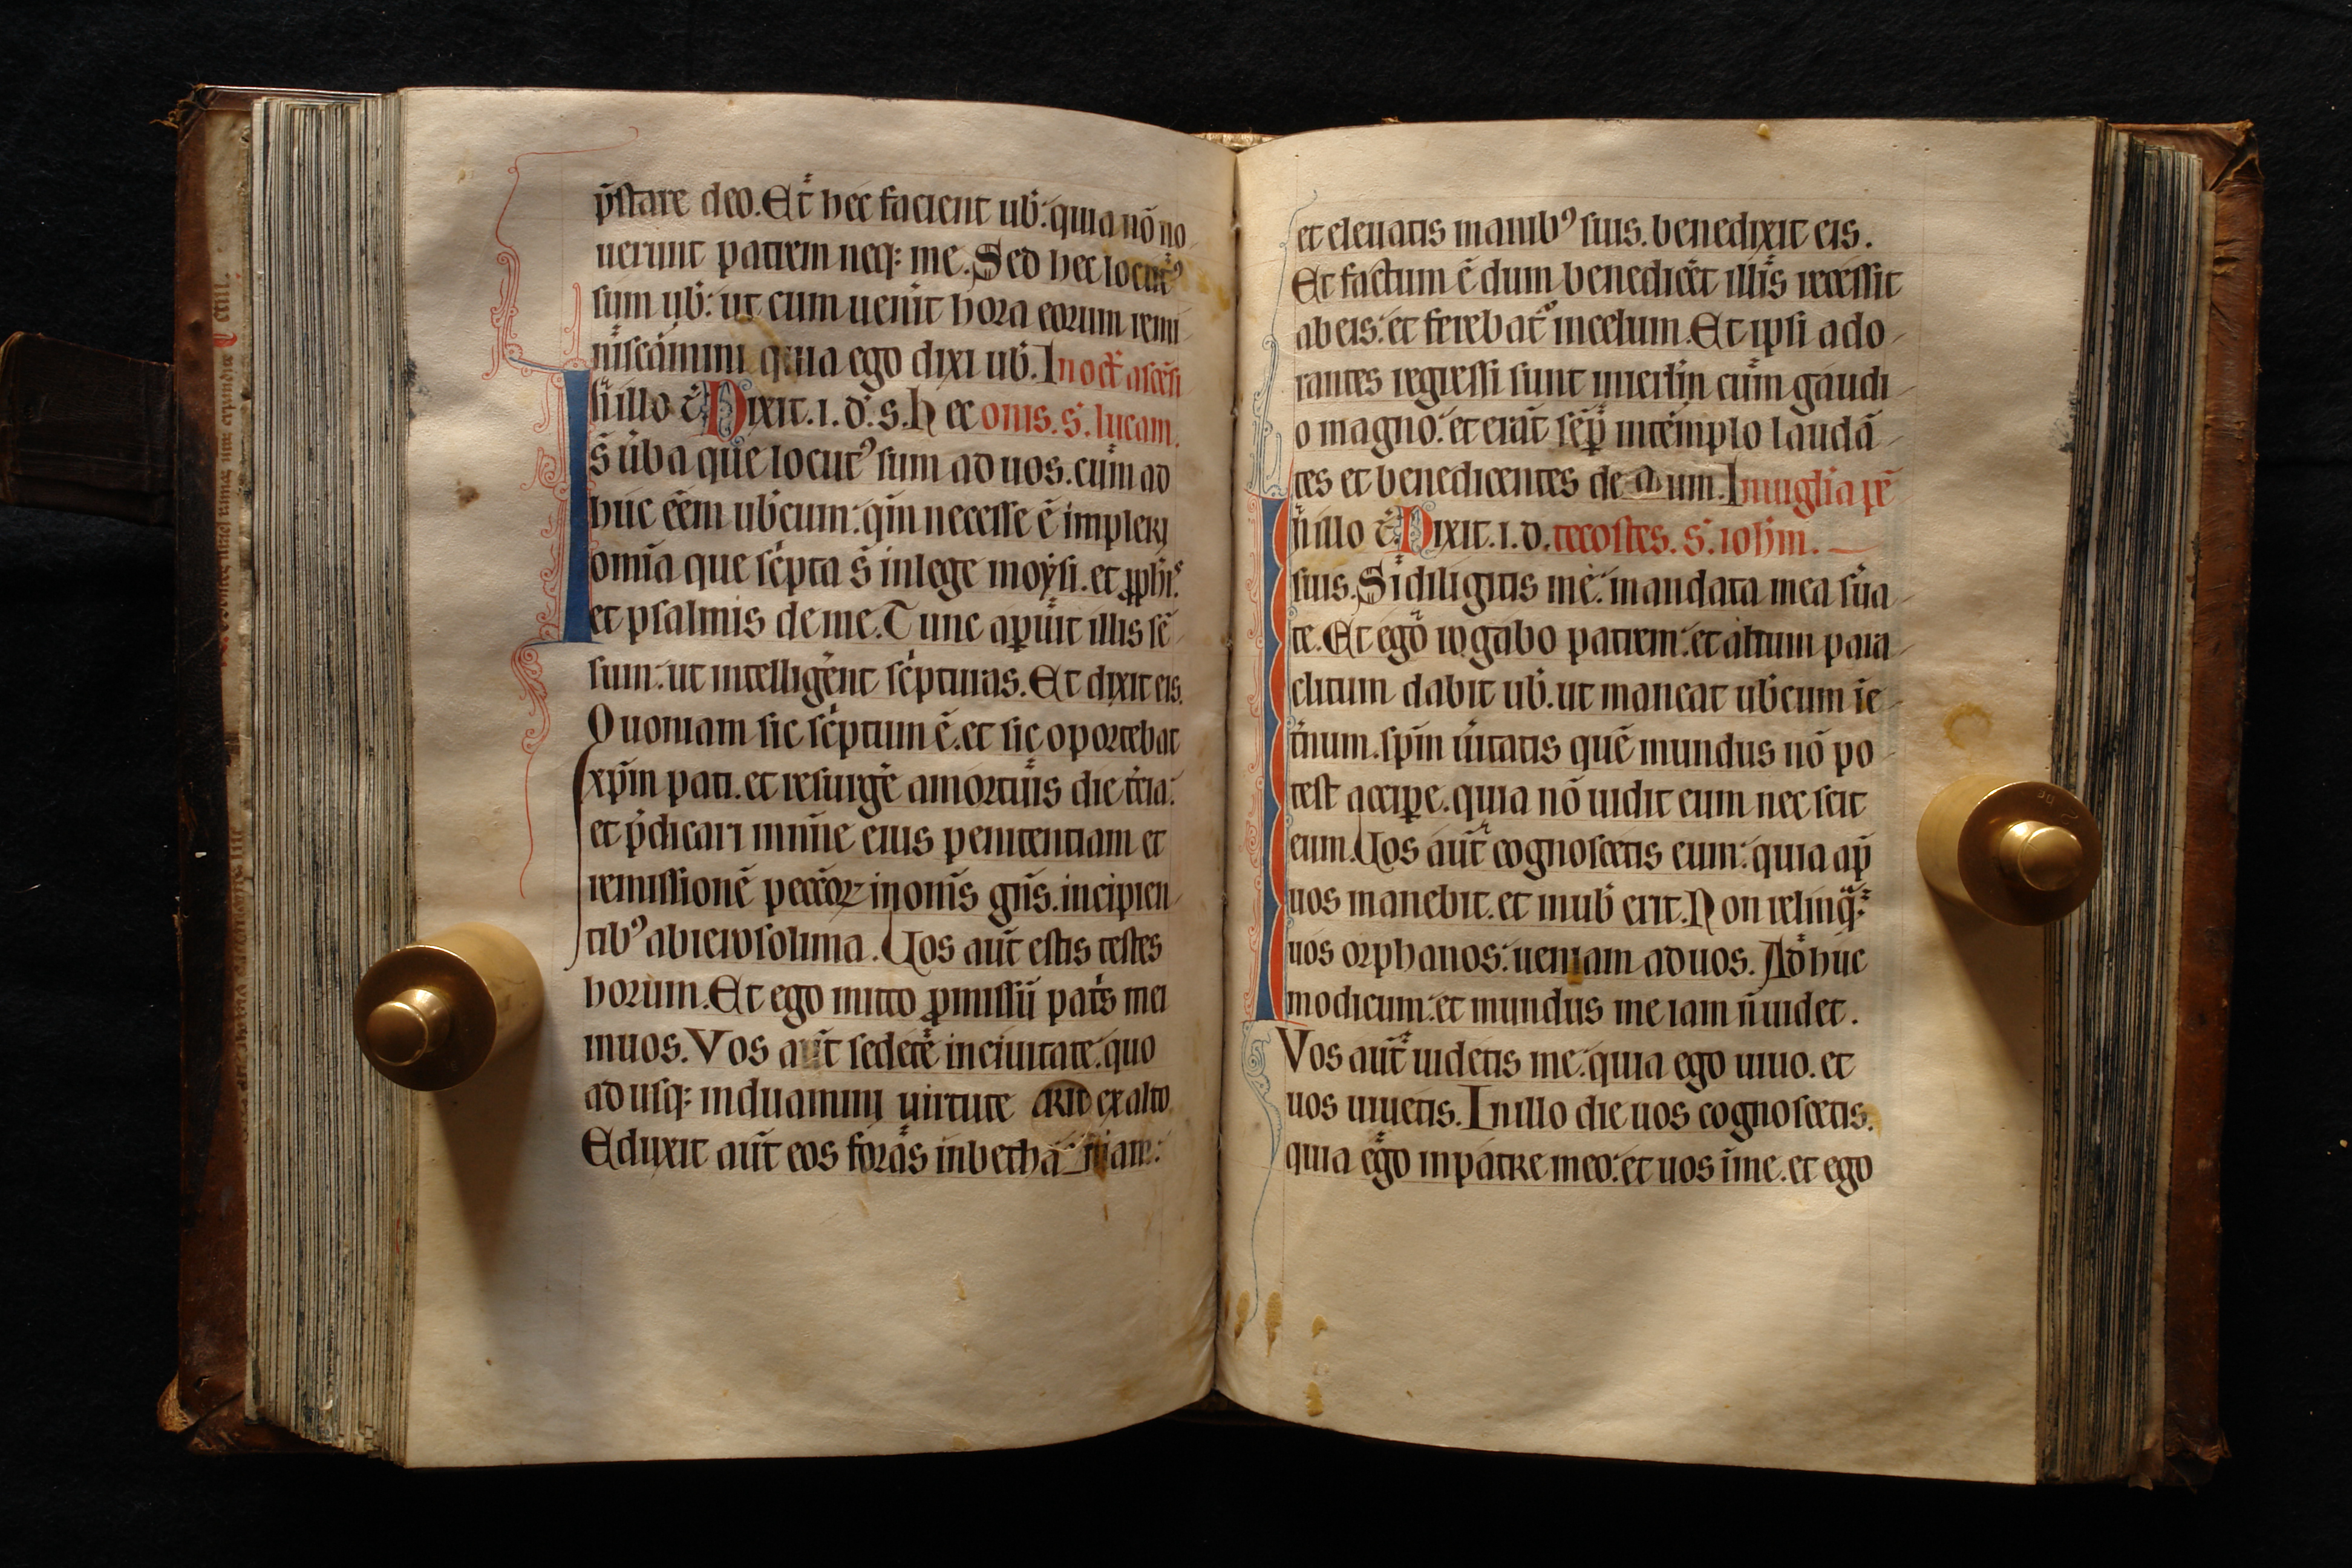 p̄stare deo. Et hec facient ub̄. quia nō no
uerunt patrem neq; me. Sed hec locut᷒
sum ub̄. ut cum uen̄it hora eorum remi
niscamini quia ego dixi ub̄. In oct̄ ascēsi
n̄ illo t̄. Dixit. i. d. s. Hec onis. s. lucam.
s̄ ūba que locut᷒ sum ad uos. cum ad
huc eēm ub̄cum. qm̄ necesse ē impleri
omīa que sc̄pta s̄ in lege moysi. et ꝓph̄is
et psalmis de me. Tunc apuit illis sē
sum. ut intelligēnt sc̄pturas. Et dixit eis.
Quoniam sic sc̄ptum ē. et sic oportebat
xp̄m pati. et resurgē a mortuis die t̄cia.
et p̄dicari in nīe eius penitentiam et
remissionē pecc̄oꝝ in omīs gn̄s. incipien
tib᷒ ab ierosolima. Uos aut̄ estis testes
horum. Et ego mitto ꝓmissū pat̄s mei
in uos. Vos aut̄ sedetē in ciuitate. quo
ad usq; induamini uirtute ex alto
Eduxit aut̄ eos foras in bethaniam.
et eleuatis manib᷒ suis. benedixit eis.
Et factum ē dum benedicēt illis recessit
ab eis. et ferebat᷑ in celum. Et ipsi ado
rantes regressi sunt in ierl̄m cum gaudi
o magno. et erāt sēp̄ in templo laudā
tes et benedicentes deum. In uigl̄ia pē
n̄ illo t̄. Dixit. i. d. tecostes. s. ioh̄m.
suis. Si diligitis me. mandata mea s̄ua
te. Et ego rogabo patrem. et alium para
clitum dabit ub̄. ut maneat ub̄cum ī e
t̄num. sp̄m ūitatis quē mundus nō po
test accipe. quia nō uidit eum nec scit
eum. Uos aut̄ cognoscetis eum. quia ap̄
uos manebit. et in ub̄ erit. Non relinq̄
uos orphanos. ueniam ad uos. Adhuc
modicum. et mundus me iam n̄ uidet.
Vos aut̄ uidetis me. quia ego uiuo. et
uos uiuetis. In illo die uos cognoscetis.
quia ego in patre meo. et uos ī me. et ego